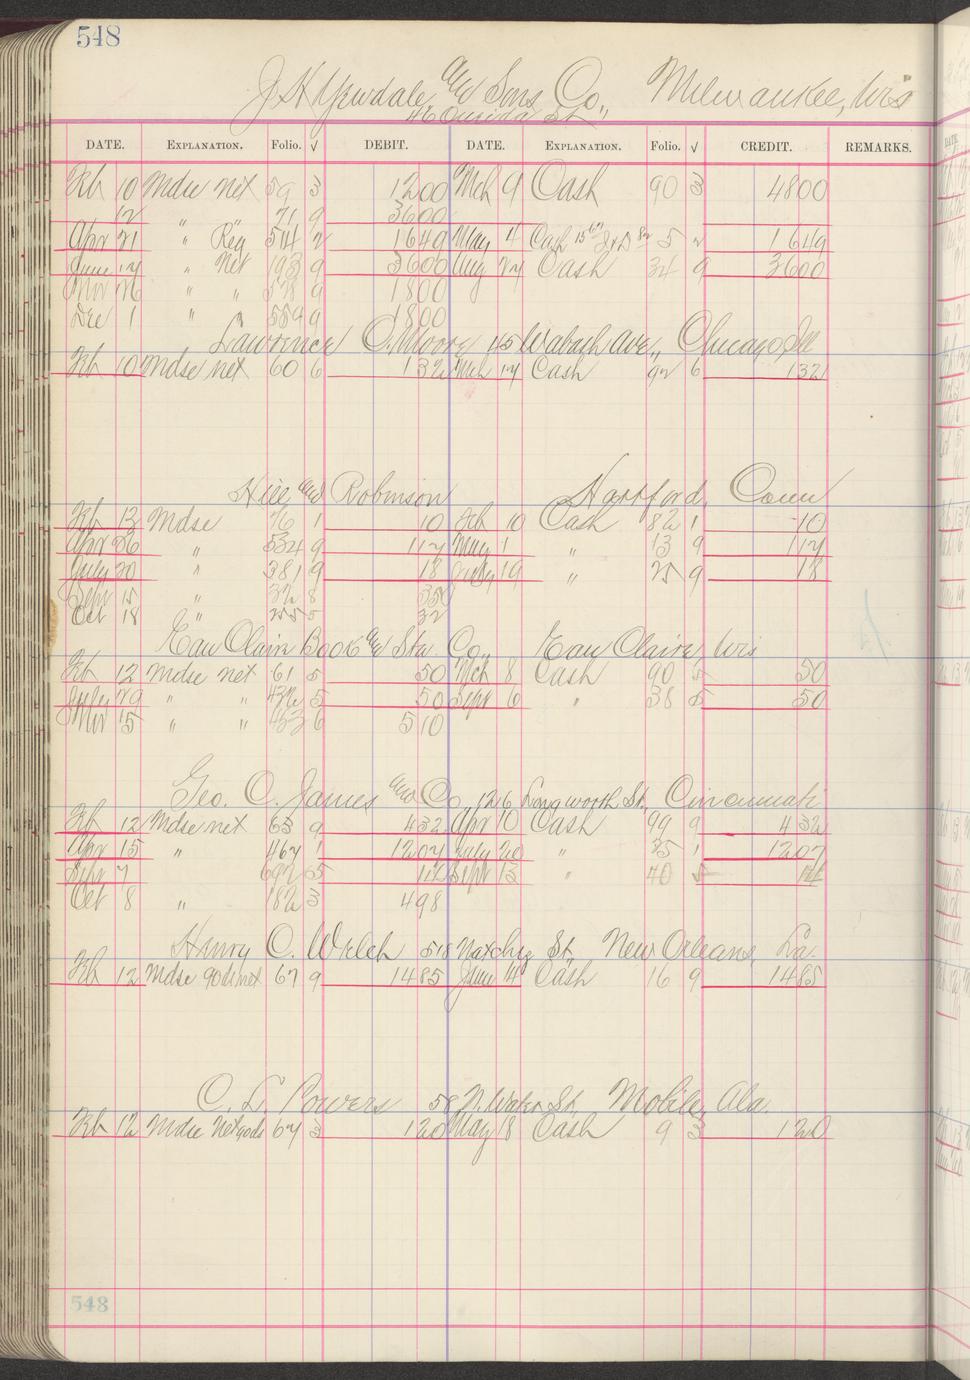 548
J. H. Yewdale and Sons Co., Milwaukee, Wis
46 Oneida St.,
DATE. EXPLANATION. Folio. √ DEBIT. DATE. EXPLANATION. Folio. √ CREDIT. REMARKS.
Feb 10 Mdse net 59 3 1200 Mch 9 Cash 90 3 4800
12 " 71 9 3600
Apr 21 " Reg 514 2 1649 May 4 Cash 5 2 1649
June 14 " Net 193 9 3600 Aug 24 Cash 34 9 3600
Nov 26 " " 578 9 1800
Dec 1 " " 559 9 1800
Lawrence C. Moore 45 Wabash Ave., Chicago, Ill
Feb 10 Mdse net 60 6 132 Mch 14 Cash 92 6 132
Hill and Robinson Hartford, Conn
Feb 13 Mdse 76 1 10 Feb 10 Cash 82 1 10
Apr 26 " 534 9 114 May 1 " 13 9 114
July 20 " 381 9 18 July 19 " 25 9 18
Sept 15 " 8 350
Oct 18 " 5 32
Eau Clair Book and Sta. Co., Eau Claire, Wis
Feb 12 Mdse net 61 5 50 Mch 8 Cash 90 5 50
July 29 " " 432 5 50 Sept 6 " 38 5 50
Nov 15 " " 6 5 10
Geo. C. James and Co. 126 Longworth St., Cincinnati
Feb 12 Mdse net 63 9 432 Apr 10 Cash 99 9 432
Apr 15 " 467 1 1207 July 20 " 25 1 1207
Sept 7 692 5 Sept 13 " 40 5
Oct 8 " 182 3 498
Henry C. Welch 518 Natchez St., New Orleans, La.
Feb 12 Mdse 90 ds net 67 9 1485 June 4 Cash 16 9 1485
C. L. Powers 58 N. Water St., Mobile, Ala.
Feb 12 Mdse Net 90ds 64 3 120 May 18 Cash 9 3 120
548